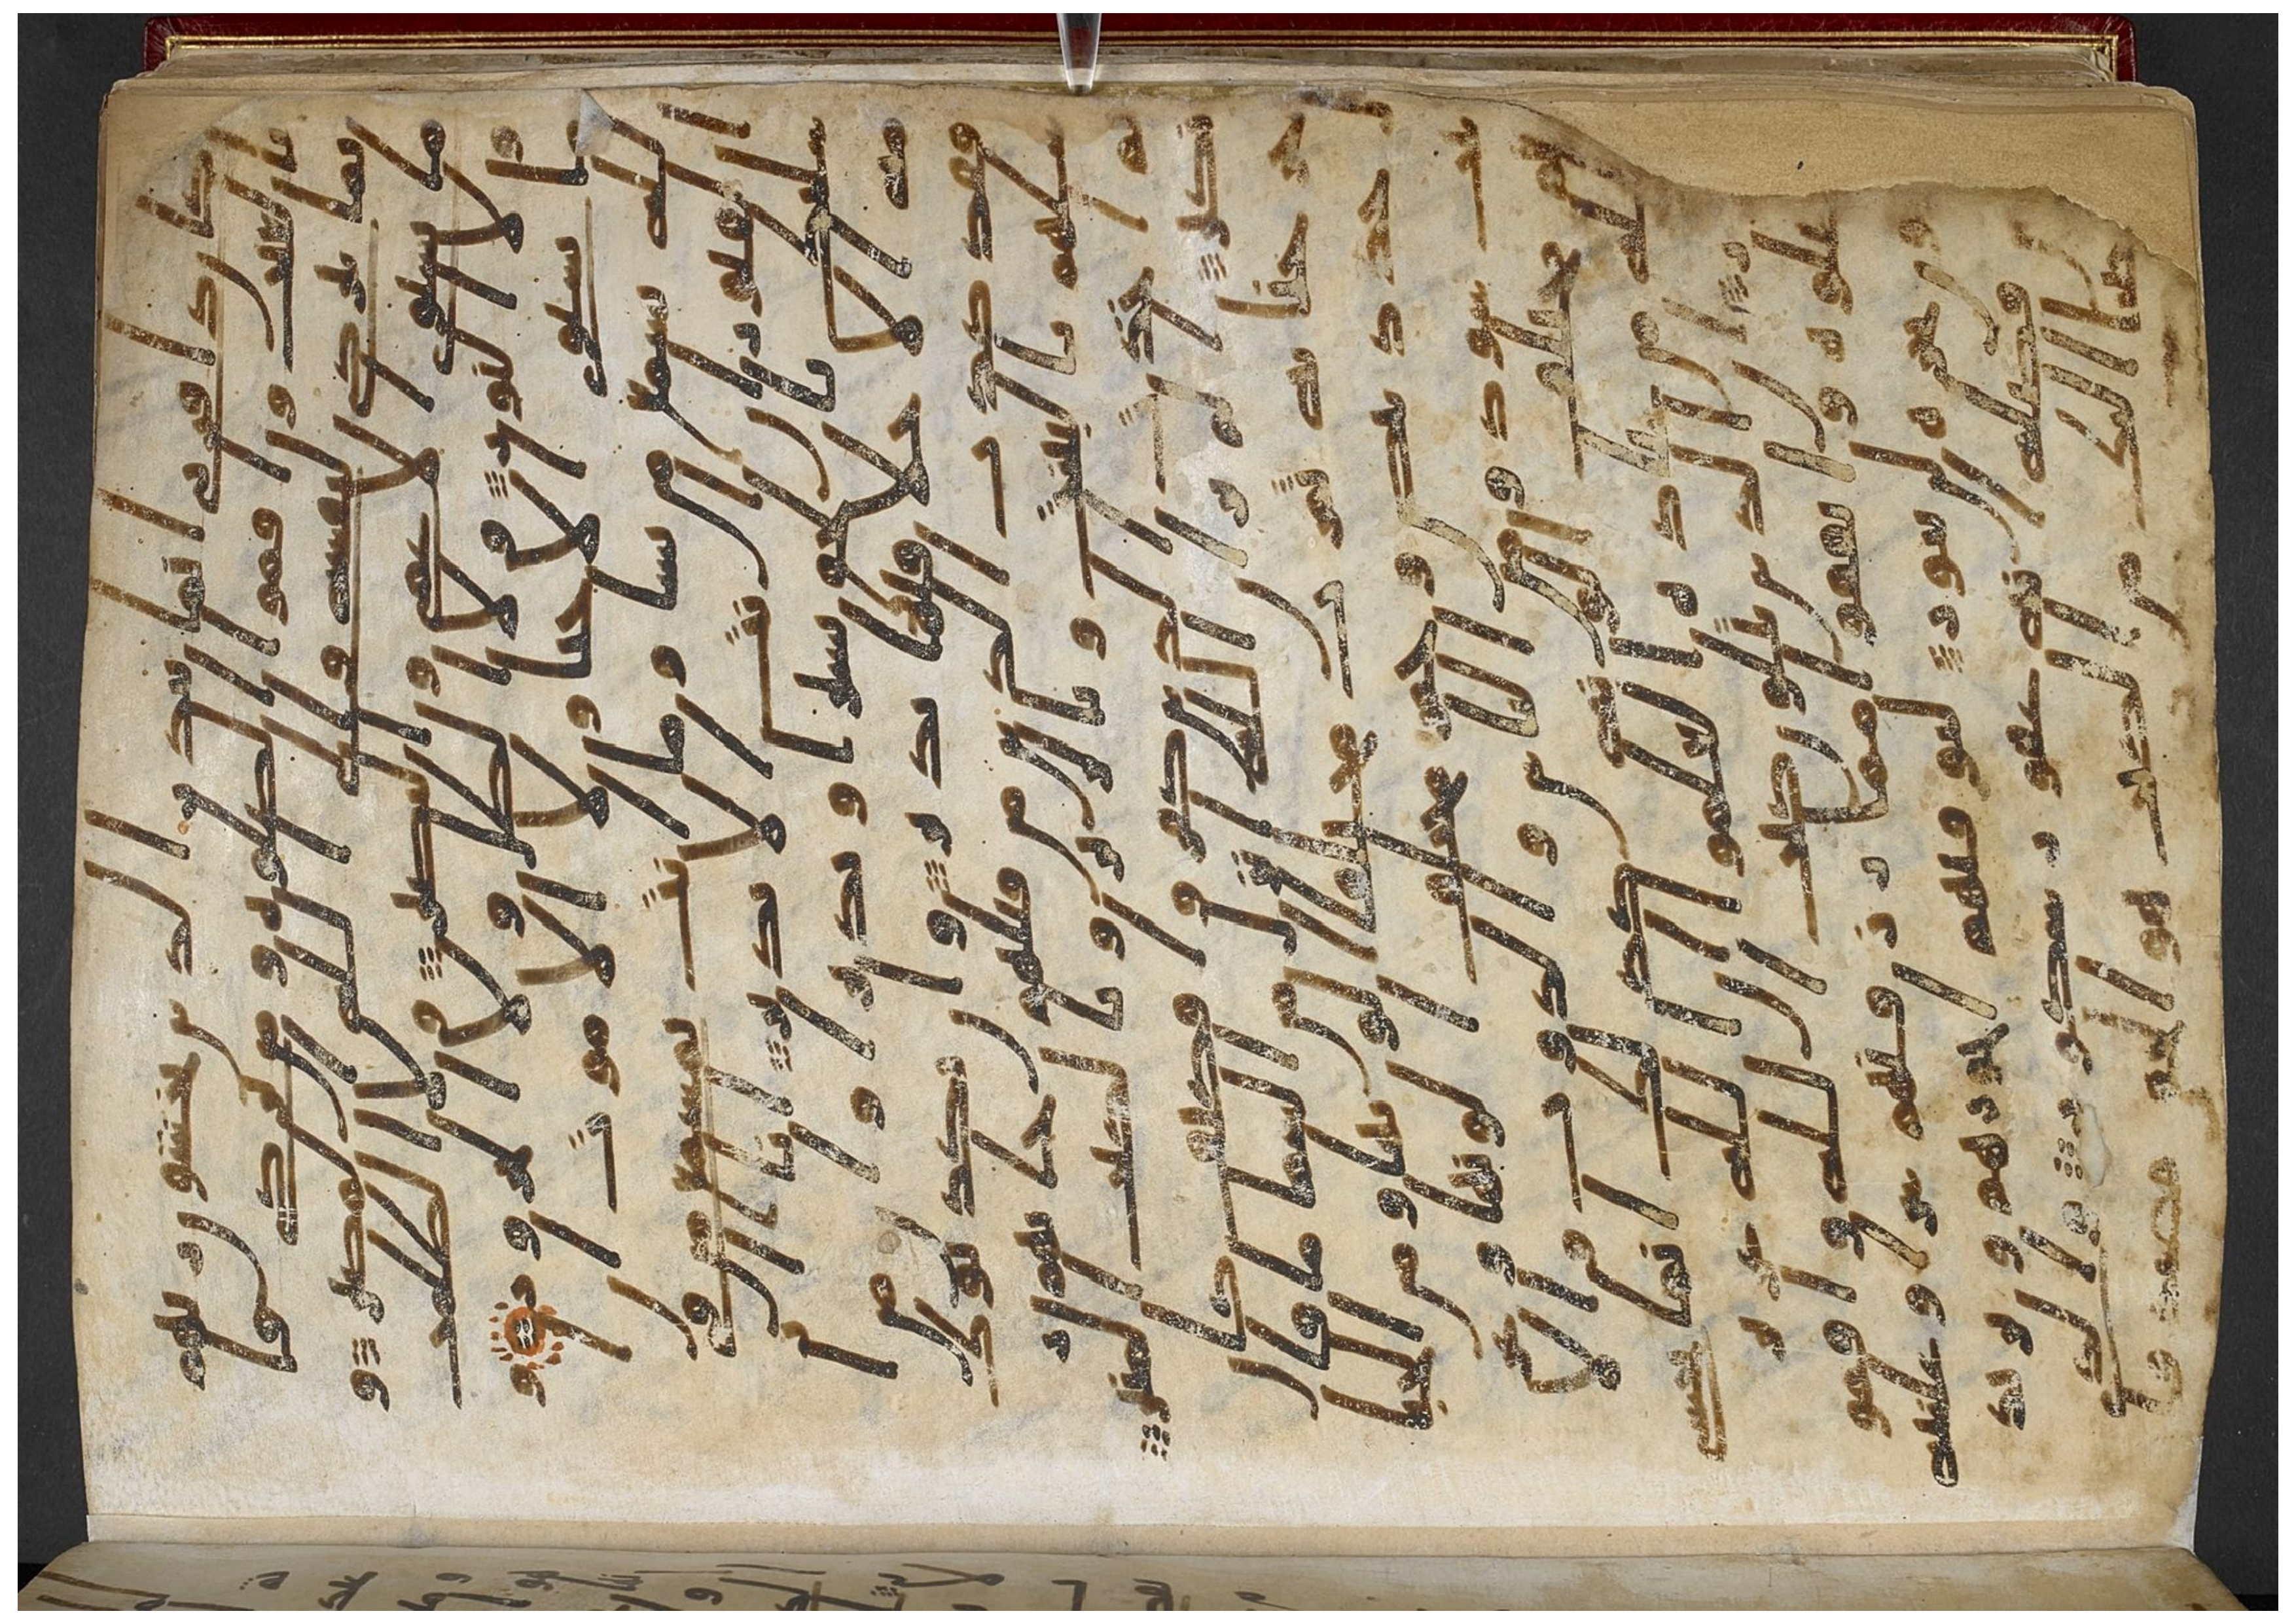 كان ذا قربى انما تنذر الذين يخشون ربهم
بالغيب واقاموا الصلوه ومن تزكى فانما
يتزكى لنفسه والى الله المصير و
ما يستوى الاعمى والبصير ولا الظلمت
ولا النور ولا الظل ولا الحرور و
ما يستوى الاحيا ولا الاموت ان
الله يسمع من يشا وما انت بمسمع من فى
القبور ان انت الا نذير انا ار
سلنك بالحق بشيرا ونذيرا وان
من امه الا خلا فيها نذير وان يكذبوك
فقد كذب الذين من قبلهم جاتهم ر
سلهم بالبينت وبالزبر وبالكتب المنير
ثم اخذت الذين كفروا فكيف كان
نكير الم تر ان الله انزل من السما ما فا
خرجنا به ثمرت مختلفا الونها ومن الجبا
ل جدد بيض وحمر مختلف الونها و
غرابيب سود ومن الناس والدواب والا
نعم مختلف الونه كذلك انما يخشى
الله من عباده العلموا ان الله عزيز
غفور ان الذين يتلون كتب الله واقاموا
الصلوه وانفقوا مما رزقنهم سرا وعلنيه
يرجون تجره لن تبور ليوفيهم اجورهم ويزيد
هم من فضله انه غفور شكور والذى
اوحينا اليك من الكتب هو الحق مصدقا